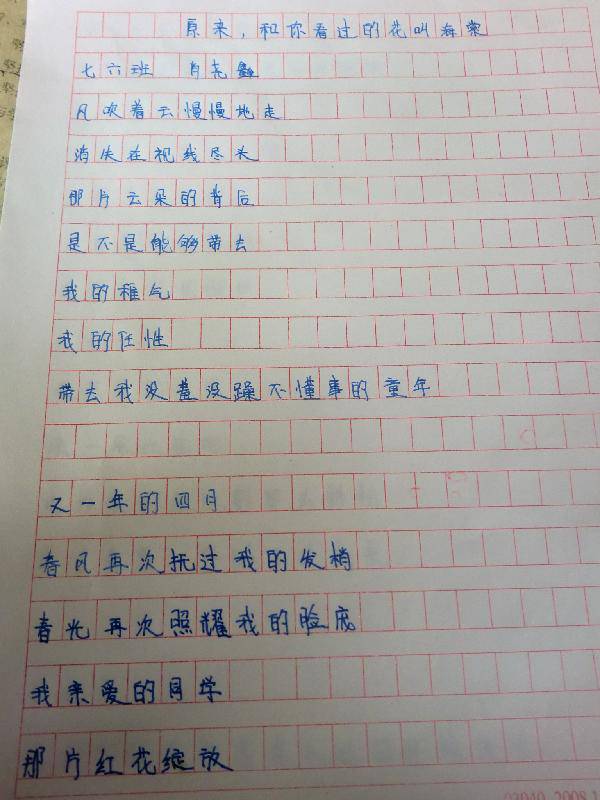 原来，和你看过的花叫海棠
七六班 肖尧
风吹着云慢慢地走
消失在视线尽头
那片云朵的背后
是不是能够带去
我的稚气
我的任性
带去我没羞没躁不懂事的童年
又一年的四月
春风再次抚过我的发梢
春光再次照耀我的脸庞
我亲爱的同学
那片红花绽放